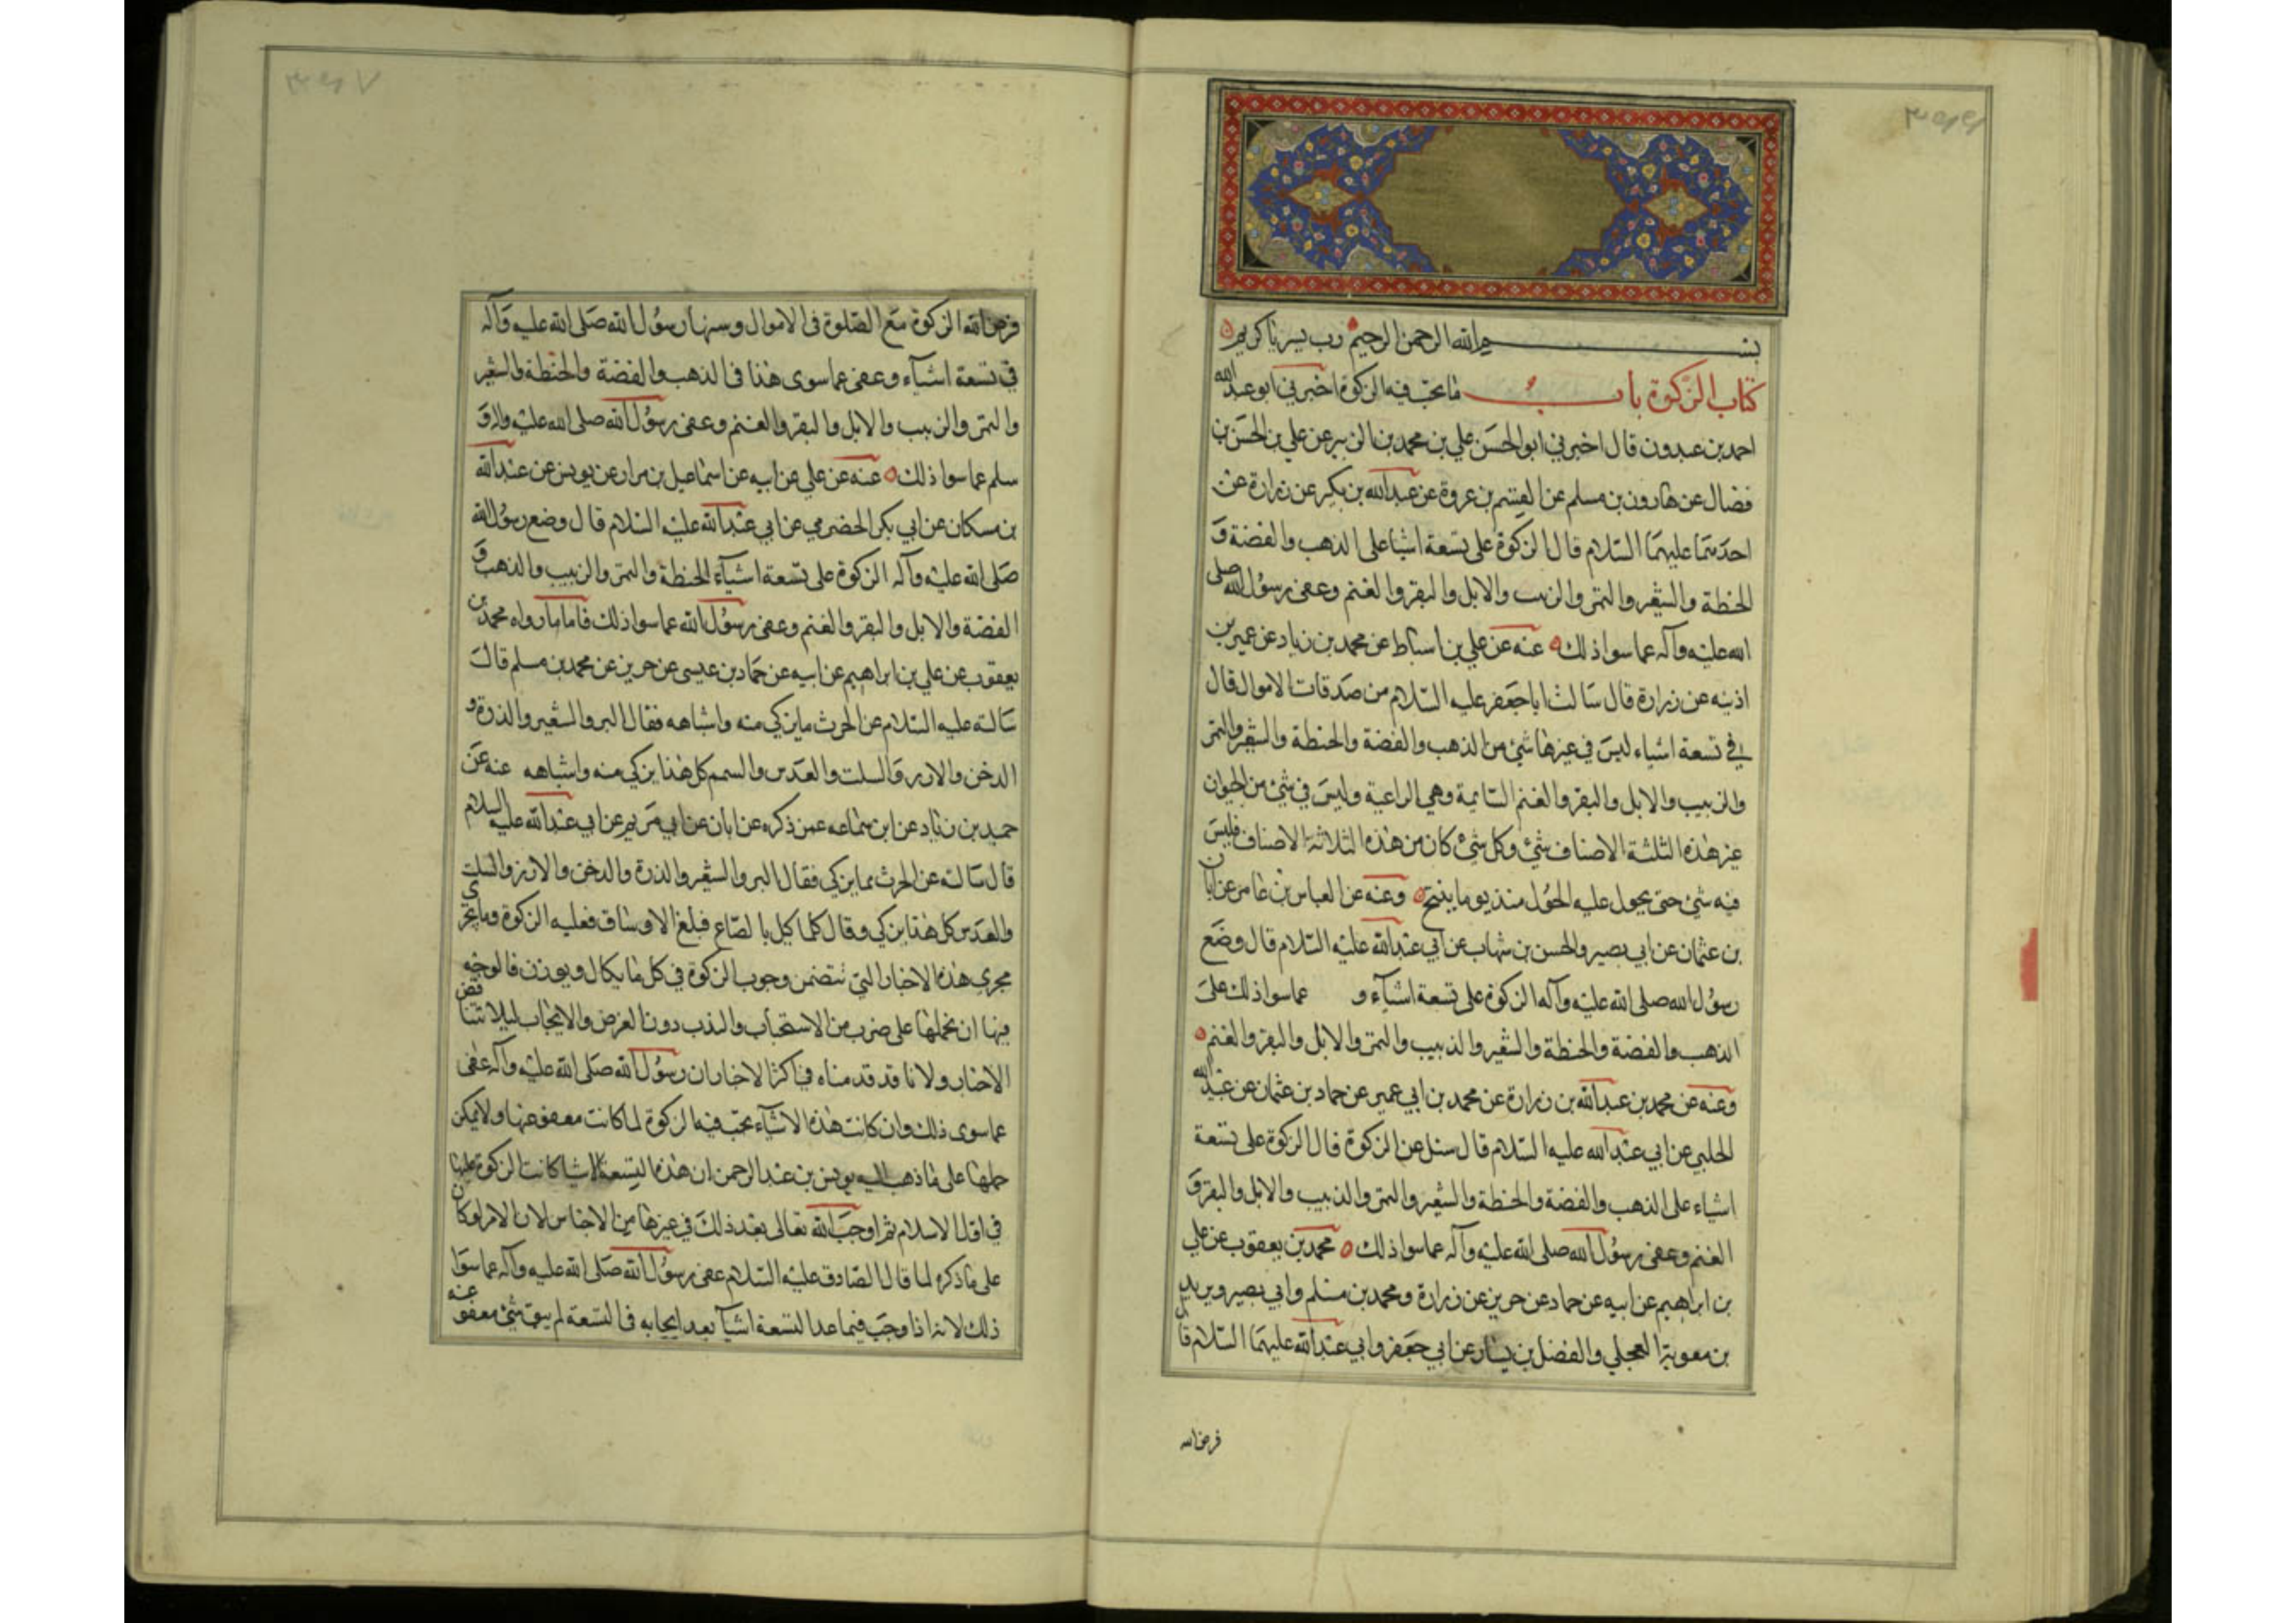 بسم الله الرحمن الرحيم رب يسر يا كريم
كتاب الزكوة باب ما يجب فيه الزكوة اخبرني ابو عبد الله
احمد بن عبدون قال اخبرني ابو الحسن علي بن محمد بن الزبير عن علي بن الحسن بن
فضال عن هارون بن مسلم عن القسم بن عروة عن عبد الله بن بكير عن زرارة عن
احدهما عليهما السلام قال الزكوة على تسعة اشيا على الذهب والفضة و
الحنطة والشعير والتمر والزبيب والابل والبقر والغنم وعفى رسول الله صلى
الله عليه وآله عما سوا ذلك عنه عن علي بن اسباط عن محمد بن زياد عن عمر بن
اذينه عن زرارة قال سالت ابا جعفر عليه السلام من صدقات الاموال قال
في تسعة اشياء ليس في غيرها شئ من الذهب والفضة والحنطة والشعير والتمر
والزبيب والابل والبقر والغنم السايمة وهي الراعية وليس في شئ من الحيوان
غير هذه الثلثة الاصناف شئ وكل شئ كان من هذه الثلاثة الاصناف فليس
فيه شئ حتى يحول عليه الحول منذ يوما ينتج وعنه عن العباس بن عامر عن ابان
بن عثمان عن ابي بصير والحسن بن شهاب عن ابي عبد الله عليه السلام قال وضع
رسول الله صلى الله عليه وآله الزكوة على تسعة اشياء و عما سوا ذلك على
الذهب والفضة والحنطة والشعير والذبيب والتمر والابل والبقر والغنم
وعنه عن محمد بن عبد الله بن زرارة عن محمد بن ابي عمير عن حماد بن عثمان عن عبيد الله
الحلبي عن ابي عبد الله عليه السلام قال سئل عن الزكوة قال الزكوة على تسعة
اشياء على الذهب والفضة والحنطة والشعير والتمر والذبيب والابل والبقر و
الغنم وعفى رسول الله صلى الله عليه وآله عما سوا ذلك محمد بن يعقوب عن علي
بن ابراهيم عن ابيه عن حماد عن حريز عن زرارة ومحمد بن مسلم وابي بصير وبريد
بن معوية العجلي والفضل بن يسار عن ابي جعفر وابي عبد الله عليهما السلام قال
فرض الله
فرض الله الزكوة مع الصلوة في الاموال وسنها رسول الله صلى الله عليه وآله
في تسعة اشياء وعفى عما سوى هذا في الذهب والفضة والحنطة والشعير
والتمر والزبيب والابل والبقر والغنم وعفى رسول الله صلى الله عليه واله و
سلم عما سوا ذلك عنه عن علي عن ابيه عن اسماعيل بن مرار عن يونس عن عبد الله
بن مسكان عن ابي بكر الحضرمي عن ابي عبد الله عليه السلام قال وضع رسول الله
صلى الله عليه وآله الزكوة على تسعة اشياء الحنطة والتمر والزبيب والذهب و
الفضة والابل والبقر والغنم وعفى رسول الله عما سوا ذلك فاما ما رواه محمد بن
يعقوب عن علي بن ابراهيم عن ابيه عن حماد بن عيسى عن حريز عن محمد بن مسلم قال
سالته عليه السلام عن الحرث ما يزكي منه واشباهه فقال البر والشعير والذرة و
الدخن والارز والسلت والعدس والسمسم كل هذا يزكي منه واشباهه عنه عن
حميد بن زياد عن ابن سماعه عمن ذكره عن ابان عن ابي مريم عن ابي عبد الله عليه السلام
قال سالته عن الحرث مما يزكي فقال البر والشعير والذرة والدخن والارز والسلت
والعدس كل هذا يزكي وقال كلما كيل بالصاع فبلغ الاوساق فعليه الزكوة وما يجري
مجرى هذه الاخبار التي تتضمن وجوب الزكوة في كل ما يكال ويوزن فالوجه
فيها ان نحملها على ضرب من الاستحباب والندب دون الفرض والايجاب ليلا تتناقض
الاخبار ولانا قد قدمناه في اكثر الاخبار ان رسول الله صلى الله عليه وآله عفى
عما سوى ذلك وان كانت هذه الاشياء يجب فيه الزكوة لما كانت معفو عنها ولا يمكن
حملها على ما ذهب اليه يونس بن عبد الرحمن ان هذه التسعة الاشيا كانت الزكوة عليها
في اول الاسلام ثم اوجب الله تعالى بعد ذلك في غيرها من الاجناس لان الامر لو كان
على ما ذكره لما قال الصادق عليه السلام عفى رسول الله صلى الله عليه وآله عما سوا
ذلك لانه اذا وجب فيما عدا التسعة اشيآ بعد ايجابه في التسعة لم يبق شئ معفو عنه